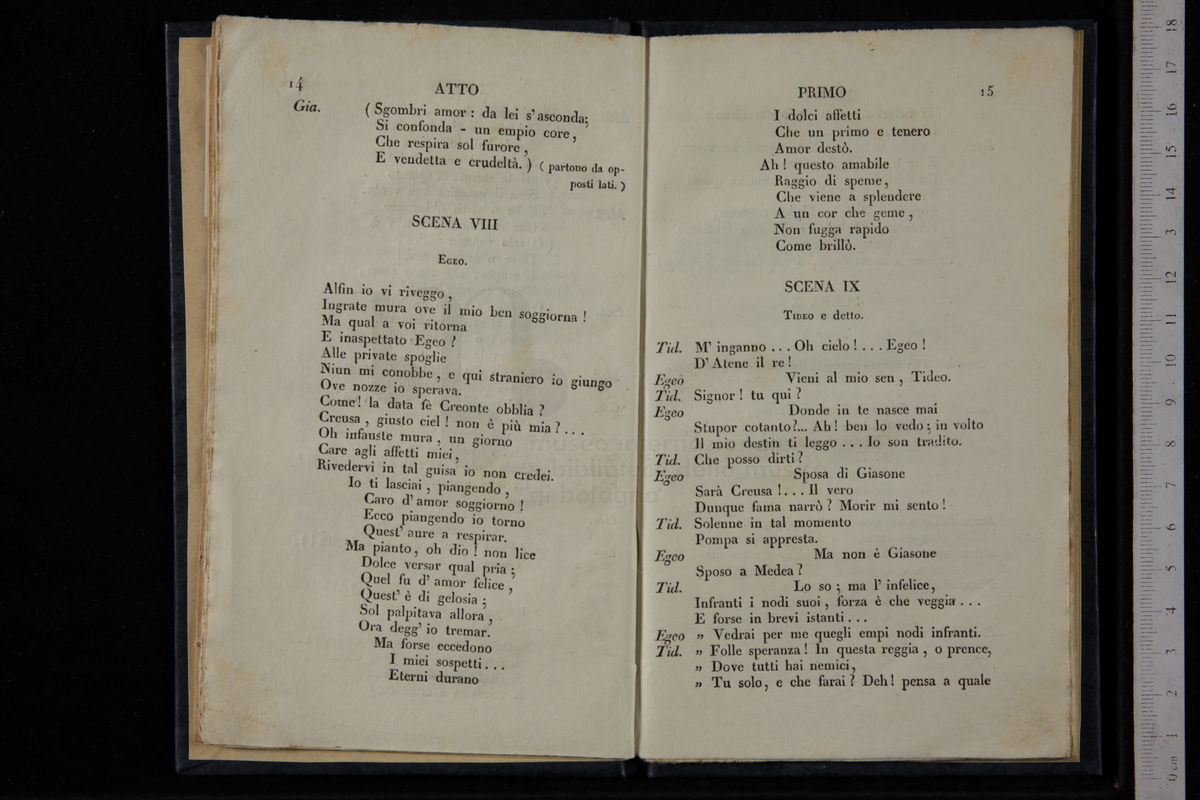 14
ATTO
Gia. ( Sgombri amor : da lei s' asconda;
Si confonda - un empio core,
Che respira sol furore,
E vendetta e crudeltà. ) ( partono da op-
posti lati. )
SCENA VIII
EGEO.
Alfin io vi riveggo,
Ingrate mura ove il mio ben soggiorna !
Ma qual a voi ritorna
E inaspettato Egeo ?
Alle private spoglie
Niun mi conobbe, e qui straniero io giungo
Ove nozze io sperava.
Come! la data fè Creonte obblia ?
Creusa, giusto ciel ! non è più mia ? . . .
Oh infauste mura, un giorno
Care agli affetti miei,
Rivedervi in tal guisa io non credei.
Io ti lasciai, piangendo,
Caro d' amor soggiorno !
Ecco piangendo io torno
Quest' aure a respirar.
Ma pianto, oh dio ! non lice
Dolce versar qual pria ;
Quel fu d' amor felice,
Quest' è di gelosia ;
Sol palpitava allora,
Ora degg' io tremar.
Ma forse eccedono
I miei sospetti. . .
Eterni durano
PRIMO
15
I dolci affetti
Che un primo e tenero
Amor destò.
Ah ! questo amabile
Raggio di speme,
Che viene a splendere
A un cor che geme,
Non fugga rapido
Come brillò.
SCENA IX
TIDEO e detto.
Tid. M' inganno . . . Oh cielo ! . . . Egeo !
D' Atene il re !
Egeo Vieni al mio sen, Tideo.
Tid. Signor ! tu qui ?
Egeo Donde in te nasce mai
Stupor cotanto?... Ah! ben lo vedo; in volto
Il mio destin ti leggo . . . Io son tradito.
Tid. Che posso dirti ?
Egeo Sposa di Giasone
Sarà Creusa !. . . Il vero
Dunque fama narrò ? Morir mi sento !
Tid. Solenne in tal momento
Pompa si appresta.
Egeo Ma non è Giasone
Sposo a Medea ?
Tid. Lo so ; ma l' infelice,
Infranti i nodi suoi, forza è che veggia . . .
E forse in brevi istanti . . .
Egeo » Vedrai per me quegli empi nodi infranti.
Tid. » Folle speranza ! In questa reggia, o prence,
» Dove tutti hai nemici,
» Tu solo, e che farai ? Deh ! pensa a quale
museo internazionale
biblioteca della musica
di bologna
0 cm 1 2 3 4 5 6 7 8 9 10 11 12 13 14 15 16 17 18